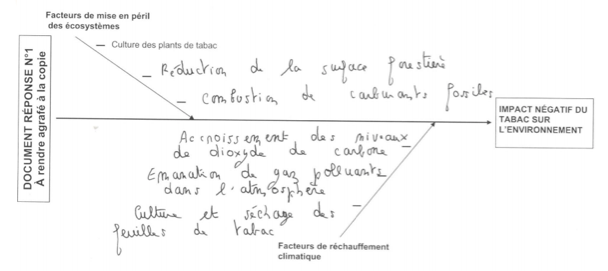 Facteurs de mise en péril
des écosystèmes
DOCUMENT RÉPONSE N°1
À rendre agrafé à la copie
— Culture des plants de tabac
— Réduction de la surface forestière
— Combustion de carburants fossiles
IMPACT NÉGATIF DU
TABAC SUR
L'ENVIRONNEMENT
Accroissement des niveaux
de dioxyde de carbone —
Emanation de gaz polluants
dans l'atmosphère —
Culture et séchage des —
feuilles de tabac
Facteurs de réchauffement
climatique